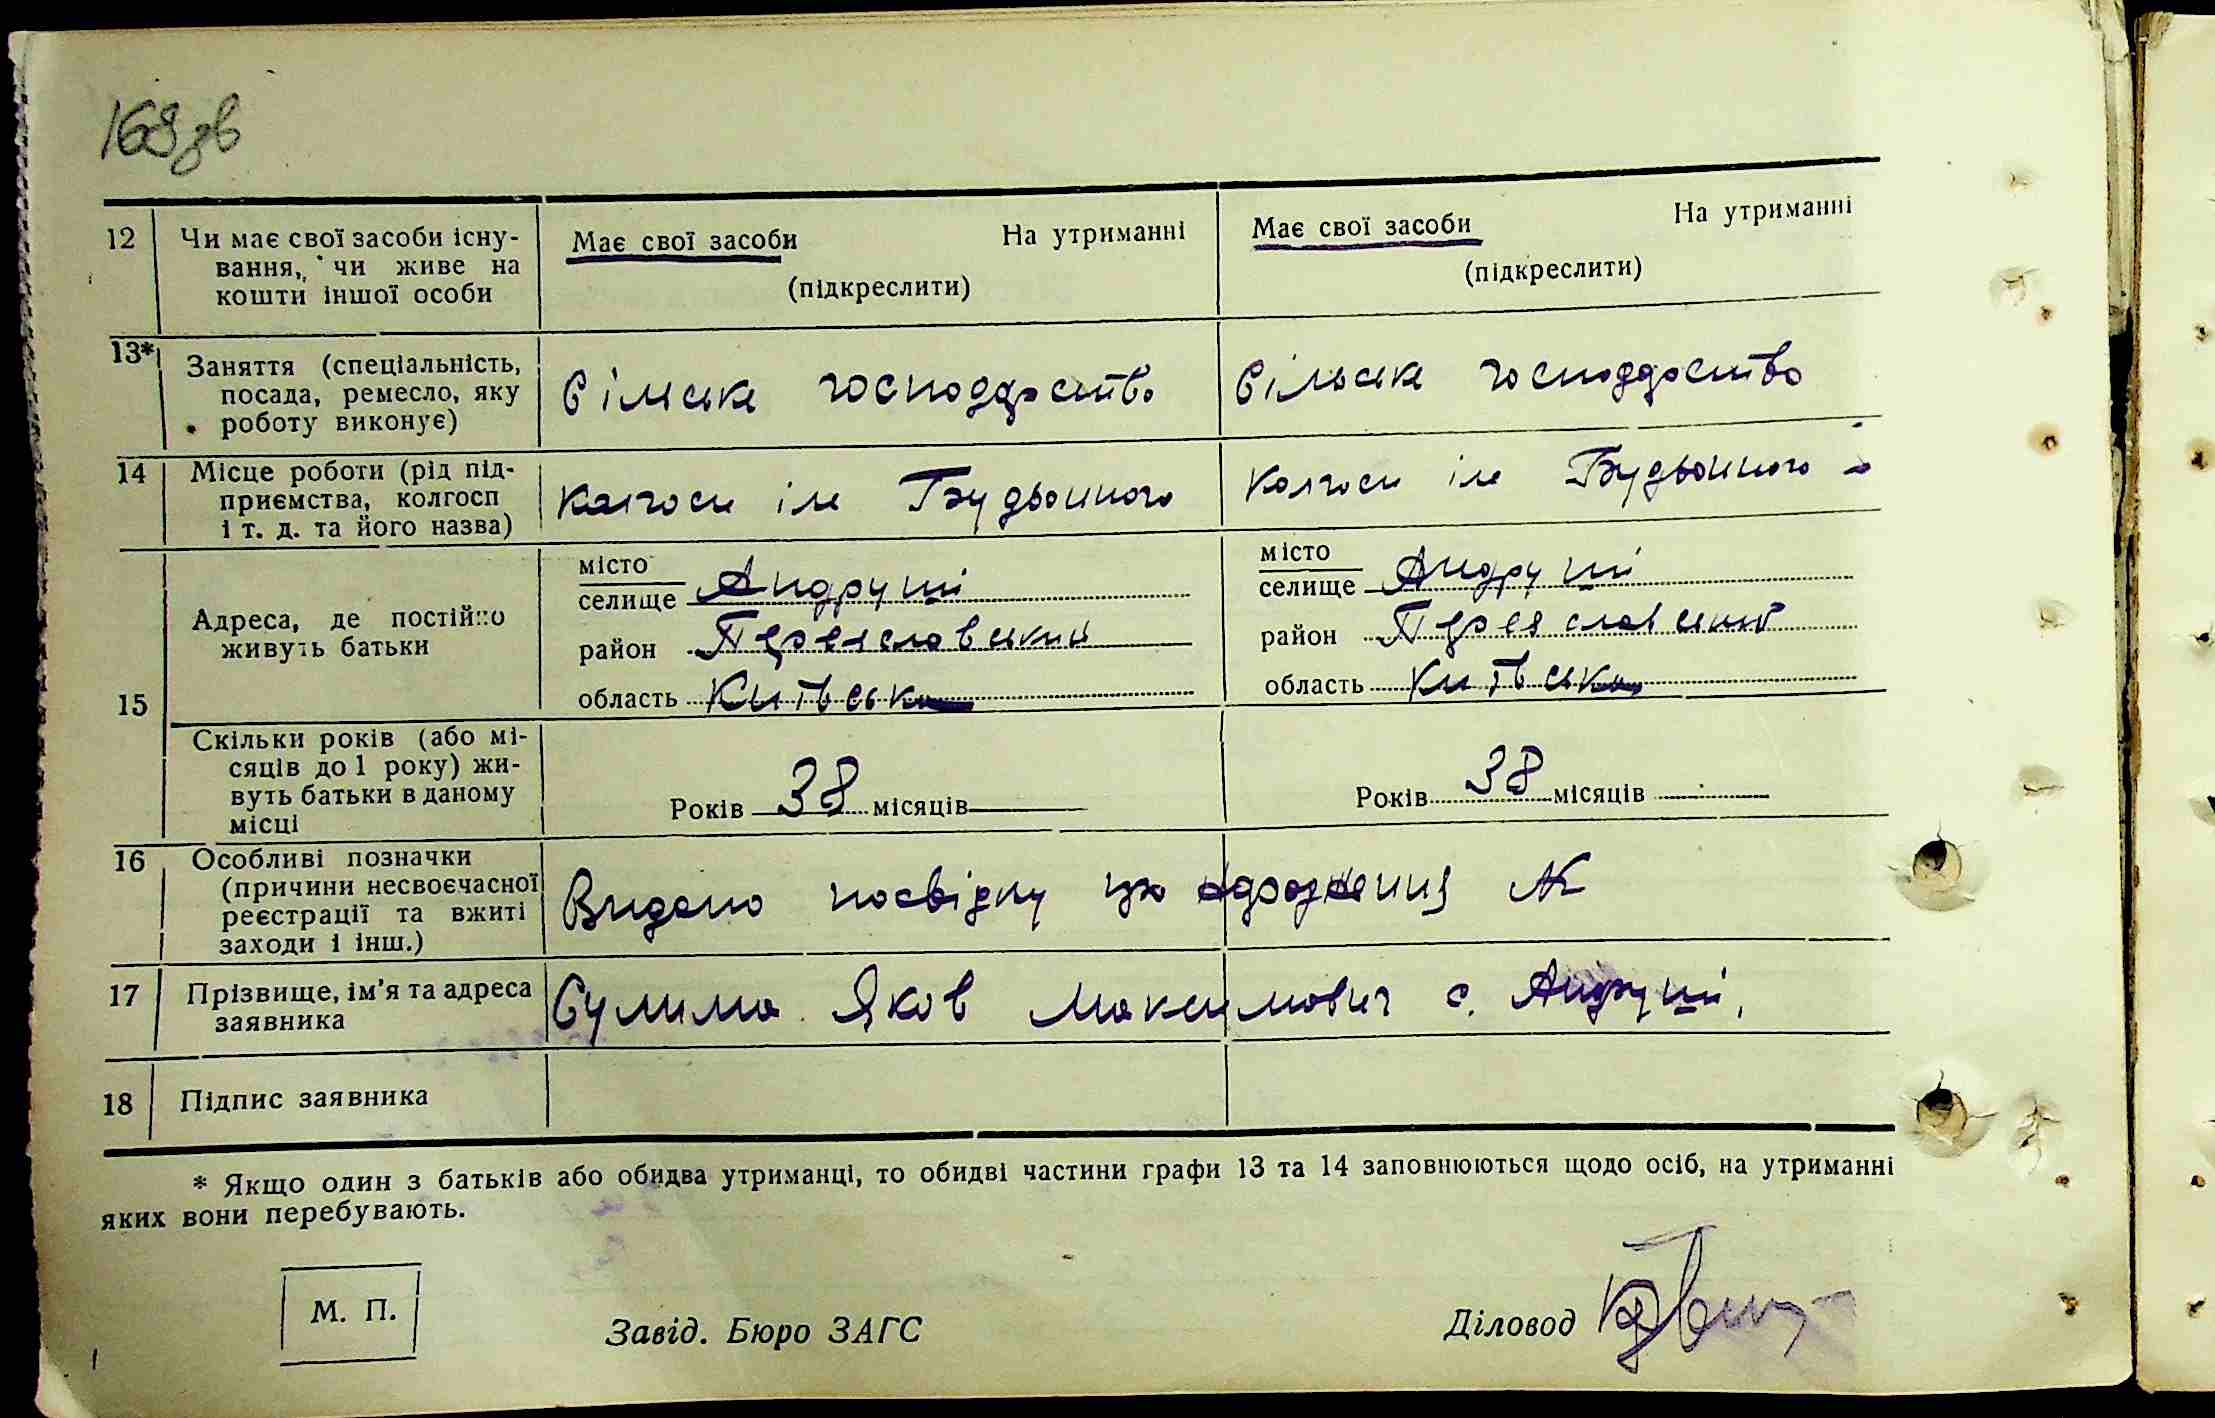 169зв
12 Чи має свої засоби існу- Має свої засоби На утриманні Має свої засоби На утриманні
вання, чи живе на (підкреслити) (підкреслити)
кошти іншої особи
13* Заняття (спеціальність, Сільське господарство Сільське господарство
посада, ремесло, яку
роботу виконує)
14 Місце роботи (рід під- Колгосп ім Будьонного Колгосп ім Будьонного
приємства, колгосп
і т. д. та його назва)
15 Адреса, де постійно
живуть батьки
місто місто
селище Андруші селище Андруші
район Переяславський район Переяславський
область Київська область Київська
Скільки років (або мі-
сяців до 1 року) жи-
вуть батьки в даному Років 38 місяців Років 38 місяців
місці
16 Особливі позначки
(причини несвоєчасної Видано посвідку про народження №
реєстрації та вжиті
заходи і інш.)
17 Прізвище, ім'я та адреса Сулима Яков Максимович с. Андруші,
заявника
18 Підпис заявника
* Якщо один з батьків або обидва утриманці, то обидві частини графи 13 та 14 заповнюються щодо осіб, на утриманні
яких вони перебувають.
М. П.
Завід. Бюро ЗАГС Діловод